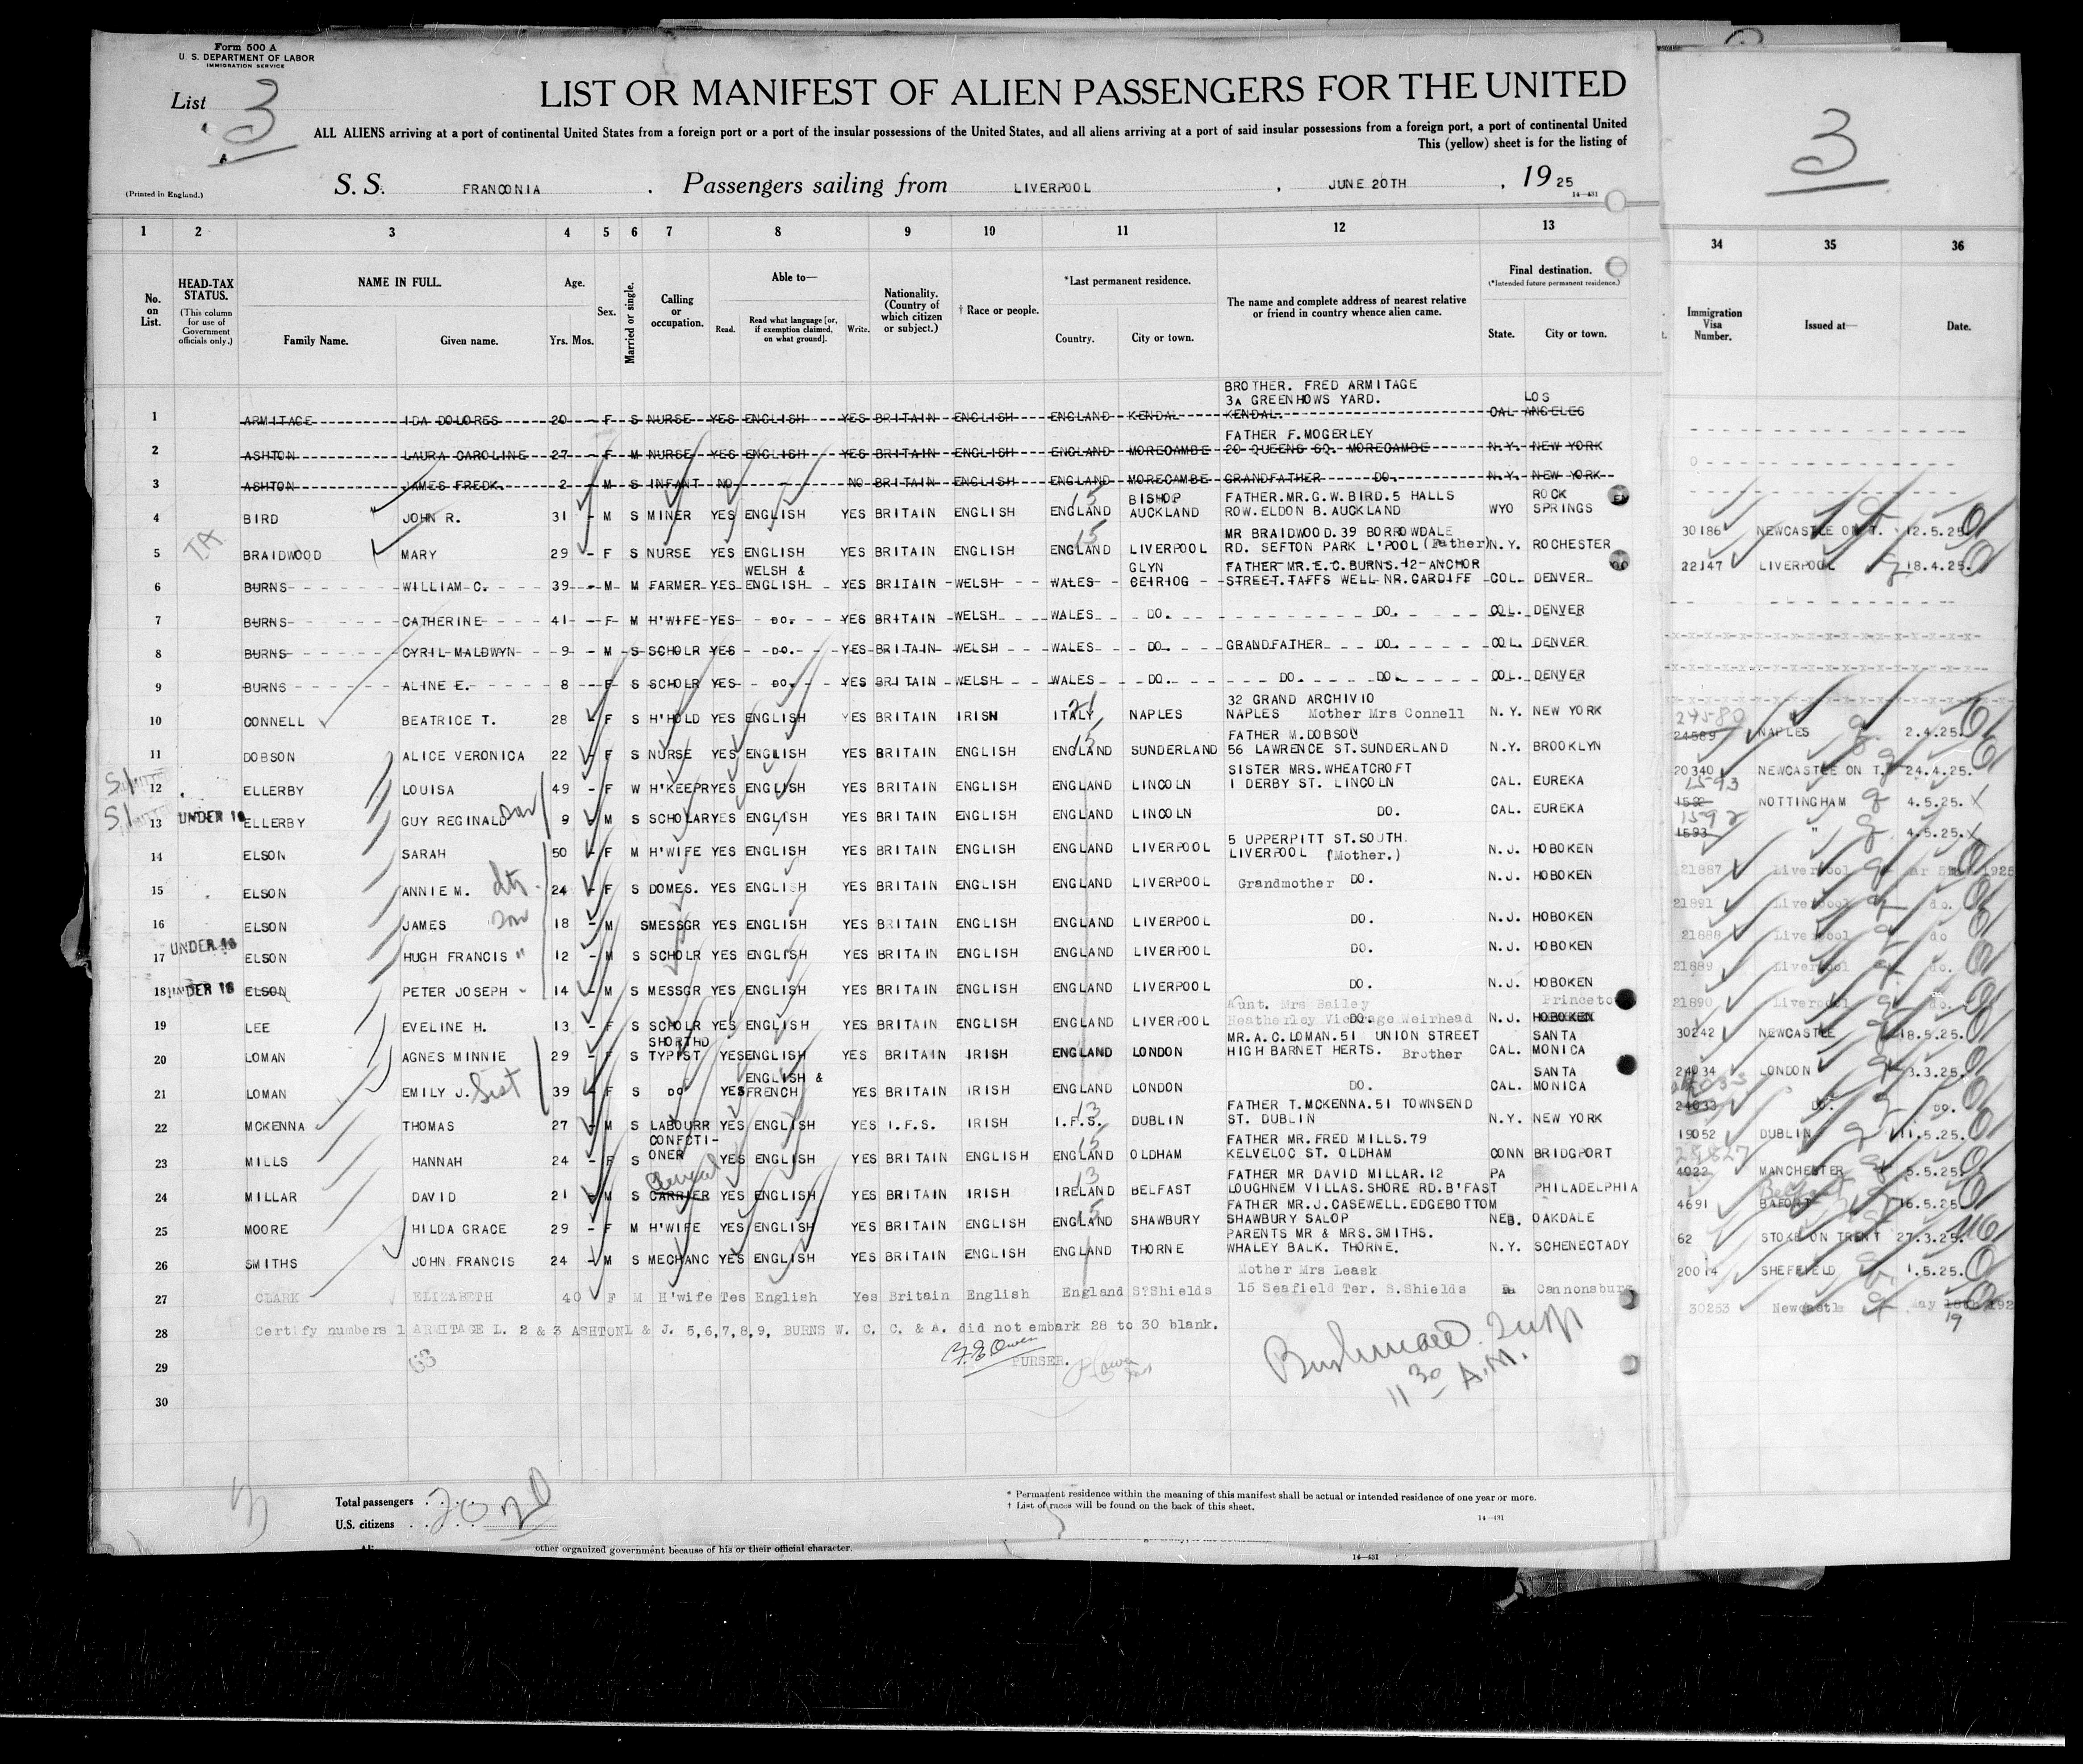 Form 500 A
U. S. DEPARTMENT OF LABOR
IMMIGRATION SERVICE
List 3
LIST OR MANIFEST OF ALIEN PASSENGERS FOR THE UNITED
ALL ALIENS arriving at a port of continental United States from a foreign port or a port of the insular possessions of the United States, and all aliens arriving at a port of said insular possessions from a foreign port, a port of continental United
This (yellow) sheet is for the listing of
(Printed in England.)
S. S. FRANCONIA . Passengers sailing from LIVERPOOL , JUNE 20TH , 19 25
14-431
3
1 2 3 4 5 6 7 8 9 10 11 12 13 34 35 36
No. on List.
HEAD-TAX STATUS. (This column for use of Government officials only.)
NAME IN FULL. Family Name. Given name.
Age. Yrs. Mos.
Sex.
Married or single.
Calling or occupation.
Able to— Read. Read what language [or, if exemption claimed, on what ground]. Write.
Nationality. (Country of which citizen or subject.)
† Race or people.
*Last permanent residence. Country. City or town.
The name and complete address of nearest relative or friend in country whence alien came.
Final destination. (*Intended future permanent residence.) State. City or town.
Immigration Visa Number.
Issued at—
Date.
1 ARMITAGE IDA DOLORES 20 - F S NURSE YES ENGLISH YES BRITAIN ENGLISH ENGLAND KENDAL BROTHER. FRED ARMITAGE 3A GREENHOWS YARD. KENDAL. CAL LOS ANGELES
2 ASHTON LAURA CAROLINE 27 - F M NURSE YES ENGLISH YES BRITAIN ENGLISH ENGLAND MORECAMBE FATHER F.MOGERLEY 20 QUEENS SQ. MORECAMBE N.Y. NEW YORK
3 ASHTON JAMES FREDK. 2 - M S INFANT NO - NO BRITAIN ENGLISH ENGLAND MORECAMBE GRANDFATHER DO. N.Y. NEW YORK
4 BIRD JOHN R. 31 - M S MINER YES ENGLISH YES BRITAIN ENGLISH 15 ENGLAND BISHOP AUCKLAND FATHER.MR.G.W.BIRD.5 HALLS ROW.ELDON B.AUCKLAND WYO ROCK SPRINGS 30186 NEWCASTLE ON T. 12.5.25.
5 BRAIDWOOD MARY 29 - F S NURSE YES ENGLISH YES BRITAIN ENGLISH 15 ENGLAND LIVERPOOL MR BRAIDWOOD.39 BORROWDALE RD. SEFTON PARK L'POOL (Father) N.Y. ROCHESTER 22147 LIVERPOOL 18.4.25.
6 BURNS WILLIAM C. 39 - M M FARMER YES WELSH & ENGLISH YES BRITAIN WELSH WALES GLYN CEIRIOG FATHER MR.E.C.BURNS.12 ANCHOR STREET.TAFFS WELL NR.CARDIFF COL. DENVER
7 BURNS CATHERINE 41 - F M H'WIFE YES DO. YES BRITAIN WELSH WALES DO. DO. COL. DENVER
8 BURNS CYRIL MALDWYN 9 - M S SCHOLR YES DO. YES BRITAIN WELSH WALES DO. GRANDFATHER DO. COL. DENVER
9 BURNS ALINE E. 8 - F S SCHOLR YES DO. YES BRITAIN WELSH WALES DO. DO. DO. COL. DENVER
10 CONNELL BEATRICE T. 28 - F S H'HOLD YES ENGLISH YES BRITAIN IRISH ITALY NAPLES 32 GRAND ARCHIVIO NAPLES Mother Mrs Connell N.Y. NEW YORK 24580 24589 NAPLES 2.4.25.
11 DOBSON ALICE VERONICA 22 - F S NURSE YES ENGLISH YES BRITAIN ENGLISH 15 ENGLAND SUNDERLAND FATHER M.DOBSON 56 LAWRENCE ST.SUNDERLAND N.Y. BROOKLYN 20340 NEWCASTLE ON T. 24.4.25.
12 ELLERBY LOUISA 49 - F W H'KEEPR YES ENGLISH YES BRITAIN ENGLISH ENGLAND LINCOLN SISTER MRS.WHEATCROFT 1 DERBY ST. LINCOLN CAL. EUREKA 1593 1592 NOTTINGHAM 4.5.25.
13 UNDER 16 ELLERBY GUY REGINALD Son 9 - M S SCHOLAR YES ENGLISH YES BRITAIN ENGLISH ENGLAND LINCOLN DO. CAL. EUREKA 1592 1593 " 4.5.25.
14 ELSON SARAH 50 - F M H'WIFE YES ENGLISH YES BRITAIN ENGLISH ENGLAND LIVERPOOL 5 UPPERPITT ST.SOUTH. LIVERPOOL (Mother.) N.J. HOBOKEN 21887 Liverpool 1925
15 ELSON ANNIE M. dtr 24 - F S DOMES. YES ENGLISH YES BRITAIN ENGLISH ENGLAND LIVERPOOL Grandmother DO. N.J. HOBOKEN 21891 Liverpool do.
16 ELSON JAMES son 18 - M S MESSGR YES ENGLISH YES BRITAIN ENGLISH ENGLAND LIVERPOOL DO. N.J. HOBOKEN 21888 Liverpool do
17 UNDER 16 ELSON HUGH FRANCIS " 12 - M S SCHOLR YES ENGLISH YES BRITAIN ENGLISH ENGLAND LIVERPOOL DO. N.J. HOBOKEN 21889 Liverpool do.
18 UNDER 16 ELSON PETER JOSEPH 14 - M S MESSGR YES ENGLISH YES BRITAIN ENGLISH ENGLAND LIVERPOOL DO. N.J. HOBOKEN 21890 Liverpool do.
19 LEE EVELINE H. 13 - F S SCHOLR YES ENGLISH YES BRITAIN ENGLISH ENGLAND LIVERPOOL Aunt. Mrs Bailey Heatherley Vicarage Weirhead DO. N.J. Princeto HOBOKEN 30242 NEWCASTLE 18.5.25.
20 LOMAN AGNES MINNIE 29 - F S SHORTHD TYPIST YES ENGLISH YES BRITAIN IRISH ENGLAND LONDON MR.A.C.LOMAN.51 UNION STREET HIGH BARNET HERTS. Brother CAL. SANTA MONICA 24034 LONDON 3.3.25.
21 LOMAN EMILY J. Sist 39 - F S DO YES ENGLISH & FRENCH YES BRITAIN IRISH ENGLAND LONDON DO. CAL. SANTA MONICA 24033 DO. DO.
22 MCKENNA THOMAS 27 - M S LABOURR YES ENGLISH YES I.F.S. IRISH 13 I.F.S. DUBLIN FATHER T.MCKENNA.51 TOWNSEND ST. DUBLIN N.Y. NEW YORK 19052 DUBLIN 11.5.25.
23 MILLS HANNAH 24 - F S CONFCTI-ONER YES ENGLISH YES BRITAIN ENGLISH 15 ENGLAND OLDHAM FATHER MR.FRED MILLS.79 KELVELOC ST. OLDHAM CONN BRIDGPORT 28827 4022 MANCHESTER 5.5.25.
24 MILLAR DAVID 21 - M S Clerical CARRIER YES ENGLISH YES BRITAIN IRISH 13 IRELAND BELFAST FATHER MR DAVID MILLAR.12 LOUGHNEM VILLAS.SHORE RD.B'FAST PA PHILADELPHIA 4691 16.5.25.
25 MOORE HILDA GRACE 29 - F M H'WIFE YES ENGLISH YES BRITAIN ENGLISH 15 ENGLAND SHAWBURY FATHER MR.J.CASEWELL.EDGEBOTTOM SHAWBURY SALOP NEB. OAKDALE 62 STOKE ON TRENT 27.3.25.
26 SMITHS JOHN FRANCIS 24 - M S MECHANC YES ENGLISH YES BRITAIN ENGLISH ENGLAND THORNE PARENTS MR & MRS.SMITHS. WHALEY BALK. THORNE. N.Y. SCHENECTADY 20014 SHEFFIELD 1.5.25.
27 CLARK ELIZABETH 40 F M H'wife Yes English Yes Britain English England S'Shields Mother Mrs Leask 15 Seafield Ter. S.Shields Pa Cannonsburg 30253 Newcastle May 18th 192 19
28 Certify numbers 1 ARMITAGE I. 2 & 3 ASHTON L & J. 5,6,7,8,9, BURNS W. C. C. & A. did not embark 28 to 30 blank.
29 PURSER.
30
11 30 A.M.
Total passengers
U.S. citizens
* Permanent residence within the meaning of this manifest shall be actual or intended residence of one year or more.
† List of races will be found on the back of this sheet.
14-431
other organized government because of his or their official character.
14-431